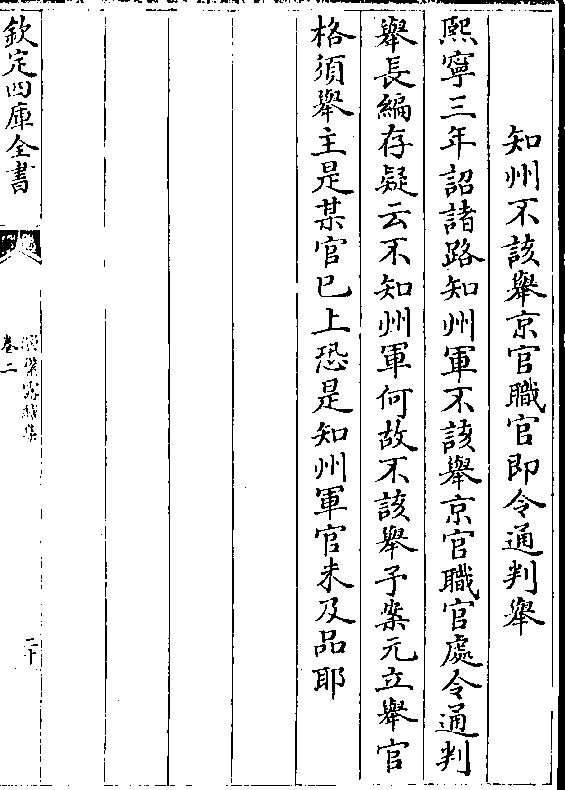 知州不該舉京官職官即令通判舉
熙寧三年詔諸路知州軍不該舉京官職官處令通判
舉長編存疑云不知州軍何故不該舉予案元立舉官
格須舉主是某官已上恐是知州軍官未及品耶
欽定四庫全書
卷二
二十